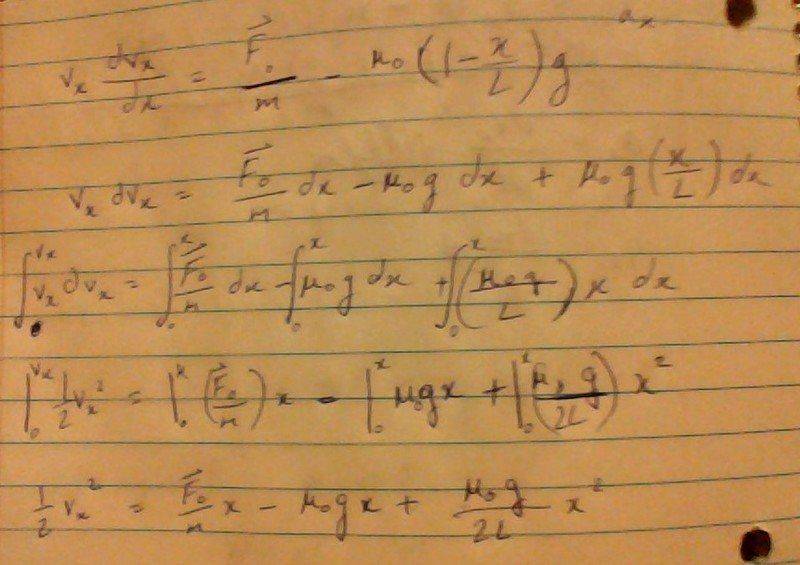 aₓ
vₓ dvₓ/dx = F⃗₀/m − μ₀(1 − x/L)g
vₓ dvₓ = F⃗₀/m dx − μ₀g dx + μ₀g(x/L)dx
∫₀^vₓ vₓ dvₓ = ∫₀^x F⃗₀/m dx − ∫₀^x μ₀g dx + ∫₀^x (μ₀g/L)x dx
|₀^vₓ ½vₓ² = |₀^x (F⃗₀/m)x − |₀^x μ₀gx + |₀^x (μ₀g/2L)x²
½vₓ² = F⃗₀/m x − μ₀gx + μ₀g/2L x²